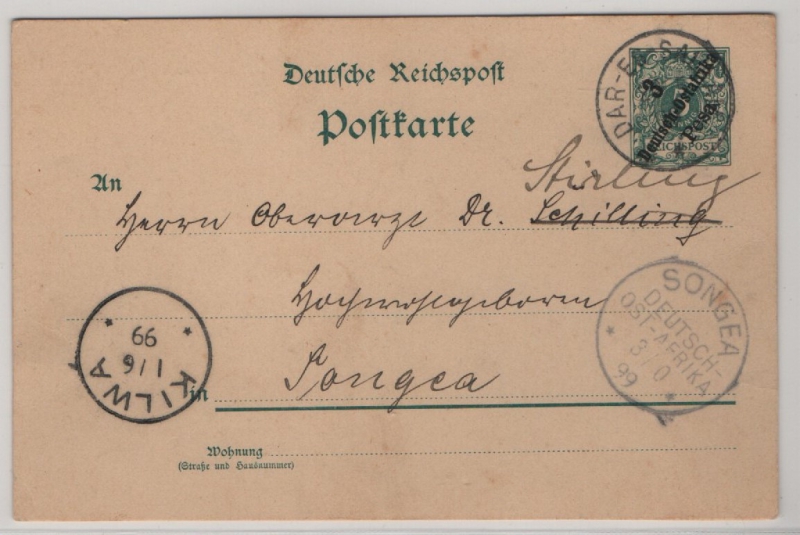 Deutsche Reichspost
Postkarte
DAR-ES-SA
3
Deutsch-Ostafrika
Pesa
5
REICHSPOST
Stirling
An
Herrn Oberarzt Dr. Schilling
Hochwohlgeboren
in Songea
KILWA
1/6
99
SONGEA
DEUTSCH-
OST-AFRIKA
99
Wohnung
(Straße und Hausnummer)